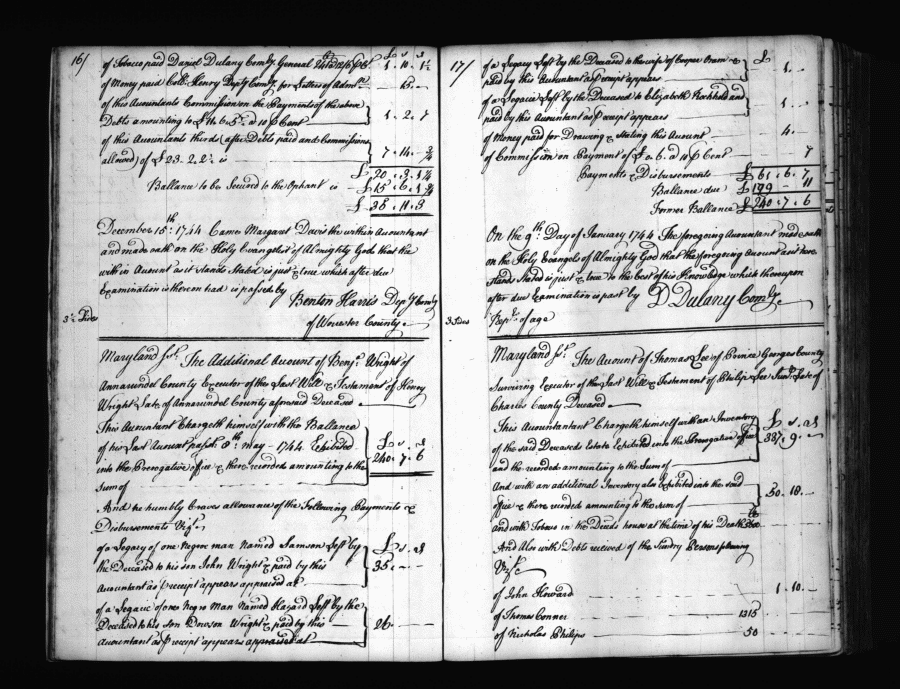 16/
£ s d
of Tobacco paid Daniel Dulany Comsy. General 1 . 10 . 1½
of Money paid Coll. Henry Depty Comsy. for Letters of Admn. 15 . –
of this Accountants Commission on the Payments of the above
Debts amounting to at 10 p Cent 1 . 2 . 7
of this Accountants thirds (after Debts paid and Commissions
allowed) of £ 23 . 2 . 2½ is 7 . 14 .
£ 20 . 3 .
Ballance to be Secured to the Orphant is £ 15 . 6 .
£ 38 . 11 . 3
December 15th. 1744 Came Margaret Davis the within Accountant
and made oath on the Holy Evangelist of Almighty God that the
within Account as it stands Stated is just & true which after due
Examination is thereon had is passed by
Benton Harris Depy Comsy
of Worcester County
3½ Sides
Maryland Sst. The Additional Account of Benja. Wright of
Annarundel County Executor of the Last Will & Testament of Henry
Wright Late of Annarundel County aforesaid Deceased
This Accountant Chargeth himself with the Ballance
of his Last Account past 8th May 1744 Exhibited £ s d
into the Prerogative Office & there recorded amounting to the 240 . 7 . 6
Sum of
And he humbly Craves allowance of the Following Payments &
Disbursements Vizt.
of a Legacy of one Negroe man Named Samson Left by £ s d
the Deceased to his son John Wright & paid by this 35 . – . –
Accountant as p receipt appears appraised at
of a Legacie of one Negro Man Named Hazard Left by the
Deceased to his son Dowson Wright & paid by this 26 – –
Accountant as p receipt appears appraised at
17/
of a Legacy Left by the Deceased to the wife of Cooper Oram & £
paid by this Accountant as p receipt appears 1 . –
of a Legacie Left by the Deceased to Elizabeth Rockhold and
paid by this Accountant as p receipt appears 1 . –
of Money paid for Drawing & Stating this Account 4 . –
of Commission on Payment of at 10 p Cent 7
Payments & Disbursements £ 61 . 6 . 7
Ballance due £ 179 – 11
Former Ballance £ 240 . 7 . 6
On the 9th. Day of January 1744 The foregoing Accountant made oath
on the Holy Evangels of Almighty God that the foregoing Account as it here
stands Stated is just & true to the best of his Knowledge which thereupon
after due Examination is past by D Dulany Comsy.
3 Sides
Repts. of age
Maryland Sst. The Account of Thomas Lee of Prince Georges County
Surviving Executor of the Last Will & Testament of Philip Lee Junr. Late of
Charles County Deceased
This Accountant Chargeth himself with an Inventory £ s d
of the said Deceaseds Estate Exhibited into the Prerogative office 337 . 9 . –
and there recorded amounting to the Sum of
And with an additional Inventory also Exhibited into the said
office & there recorded amounting to the sum of 50 . 18 . –
and with Tobacco in the Deceds house at the time of his Death
And Also with Debts received of the Sundry Persons following
Vizt.
of John Howard 1 . 10 . –
of Thomas Conner 1315
of Nicholas Philips 50